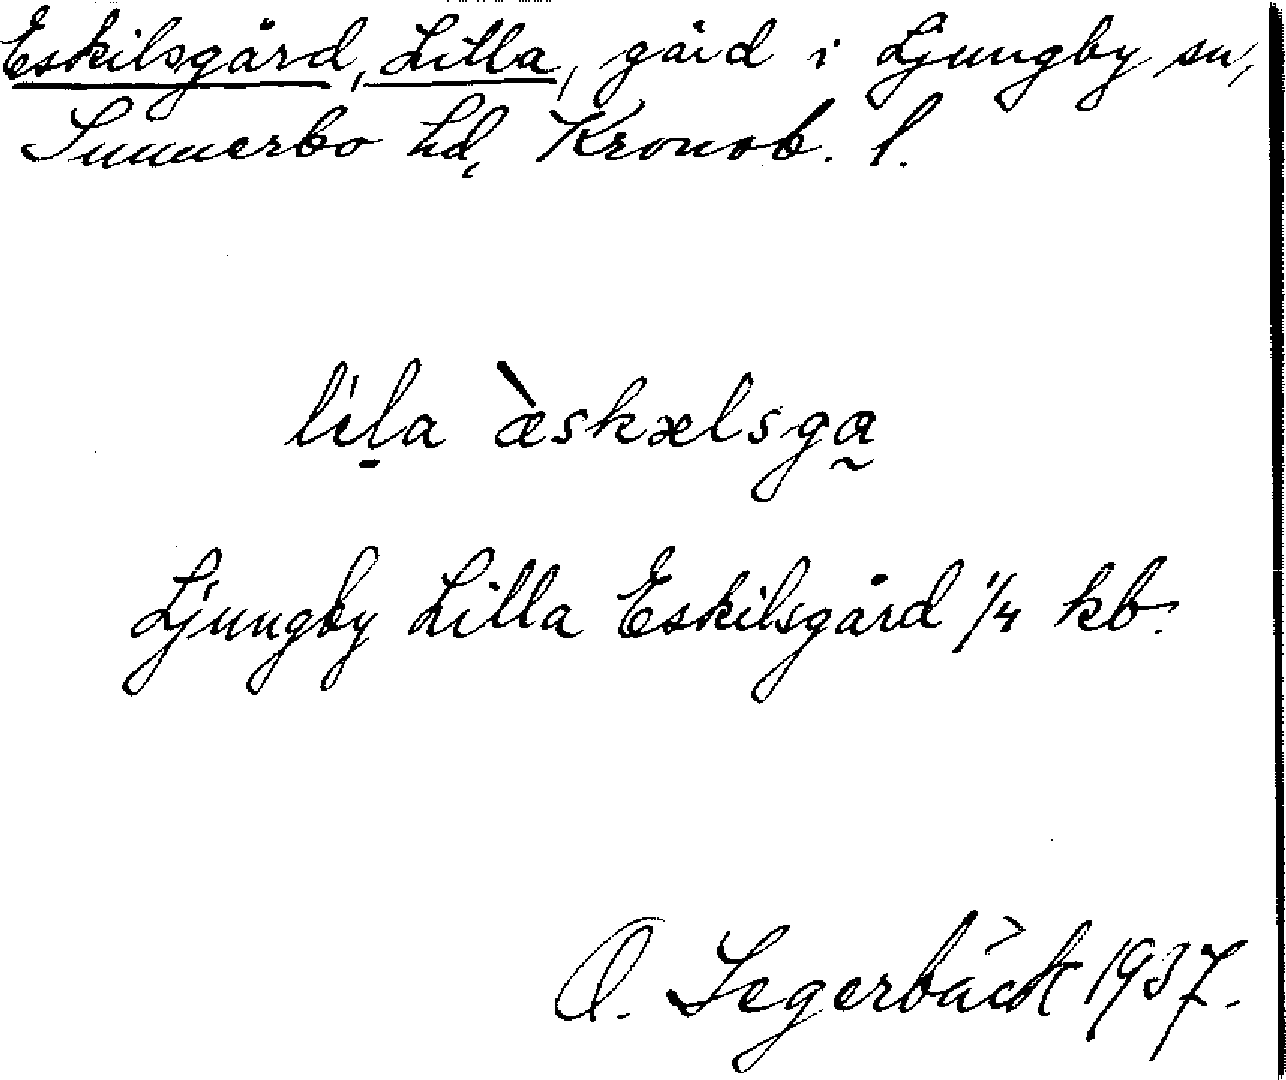 Eskilsgård, Lilla, gård i Ljungby sn,
Sunnerbo hd, Kronob. l.
lịla æ̀skælsga̰
Ljungby Lilla Eskilsgård 1/4 kb.
O. Segerbäck 1937.